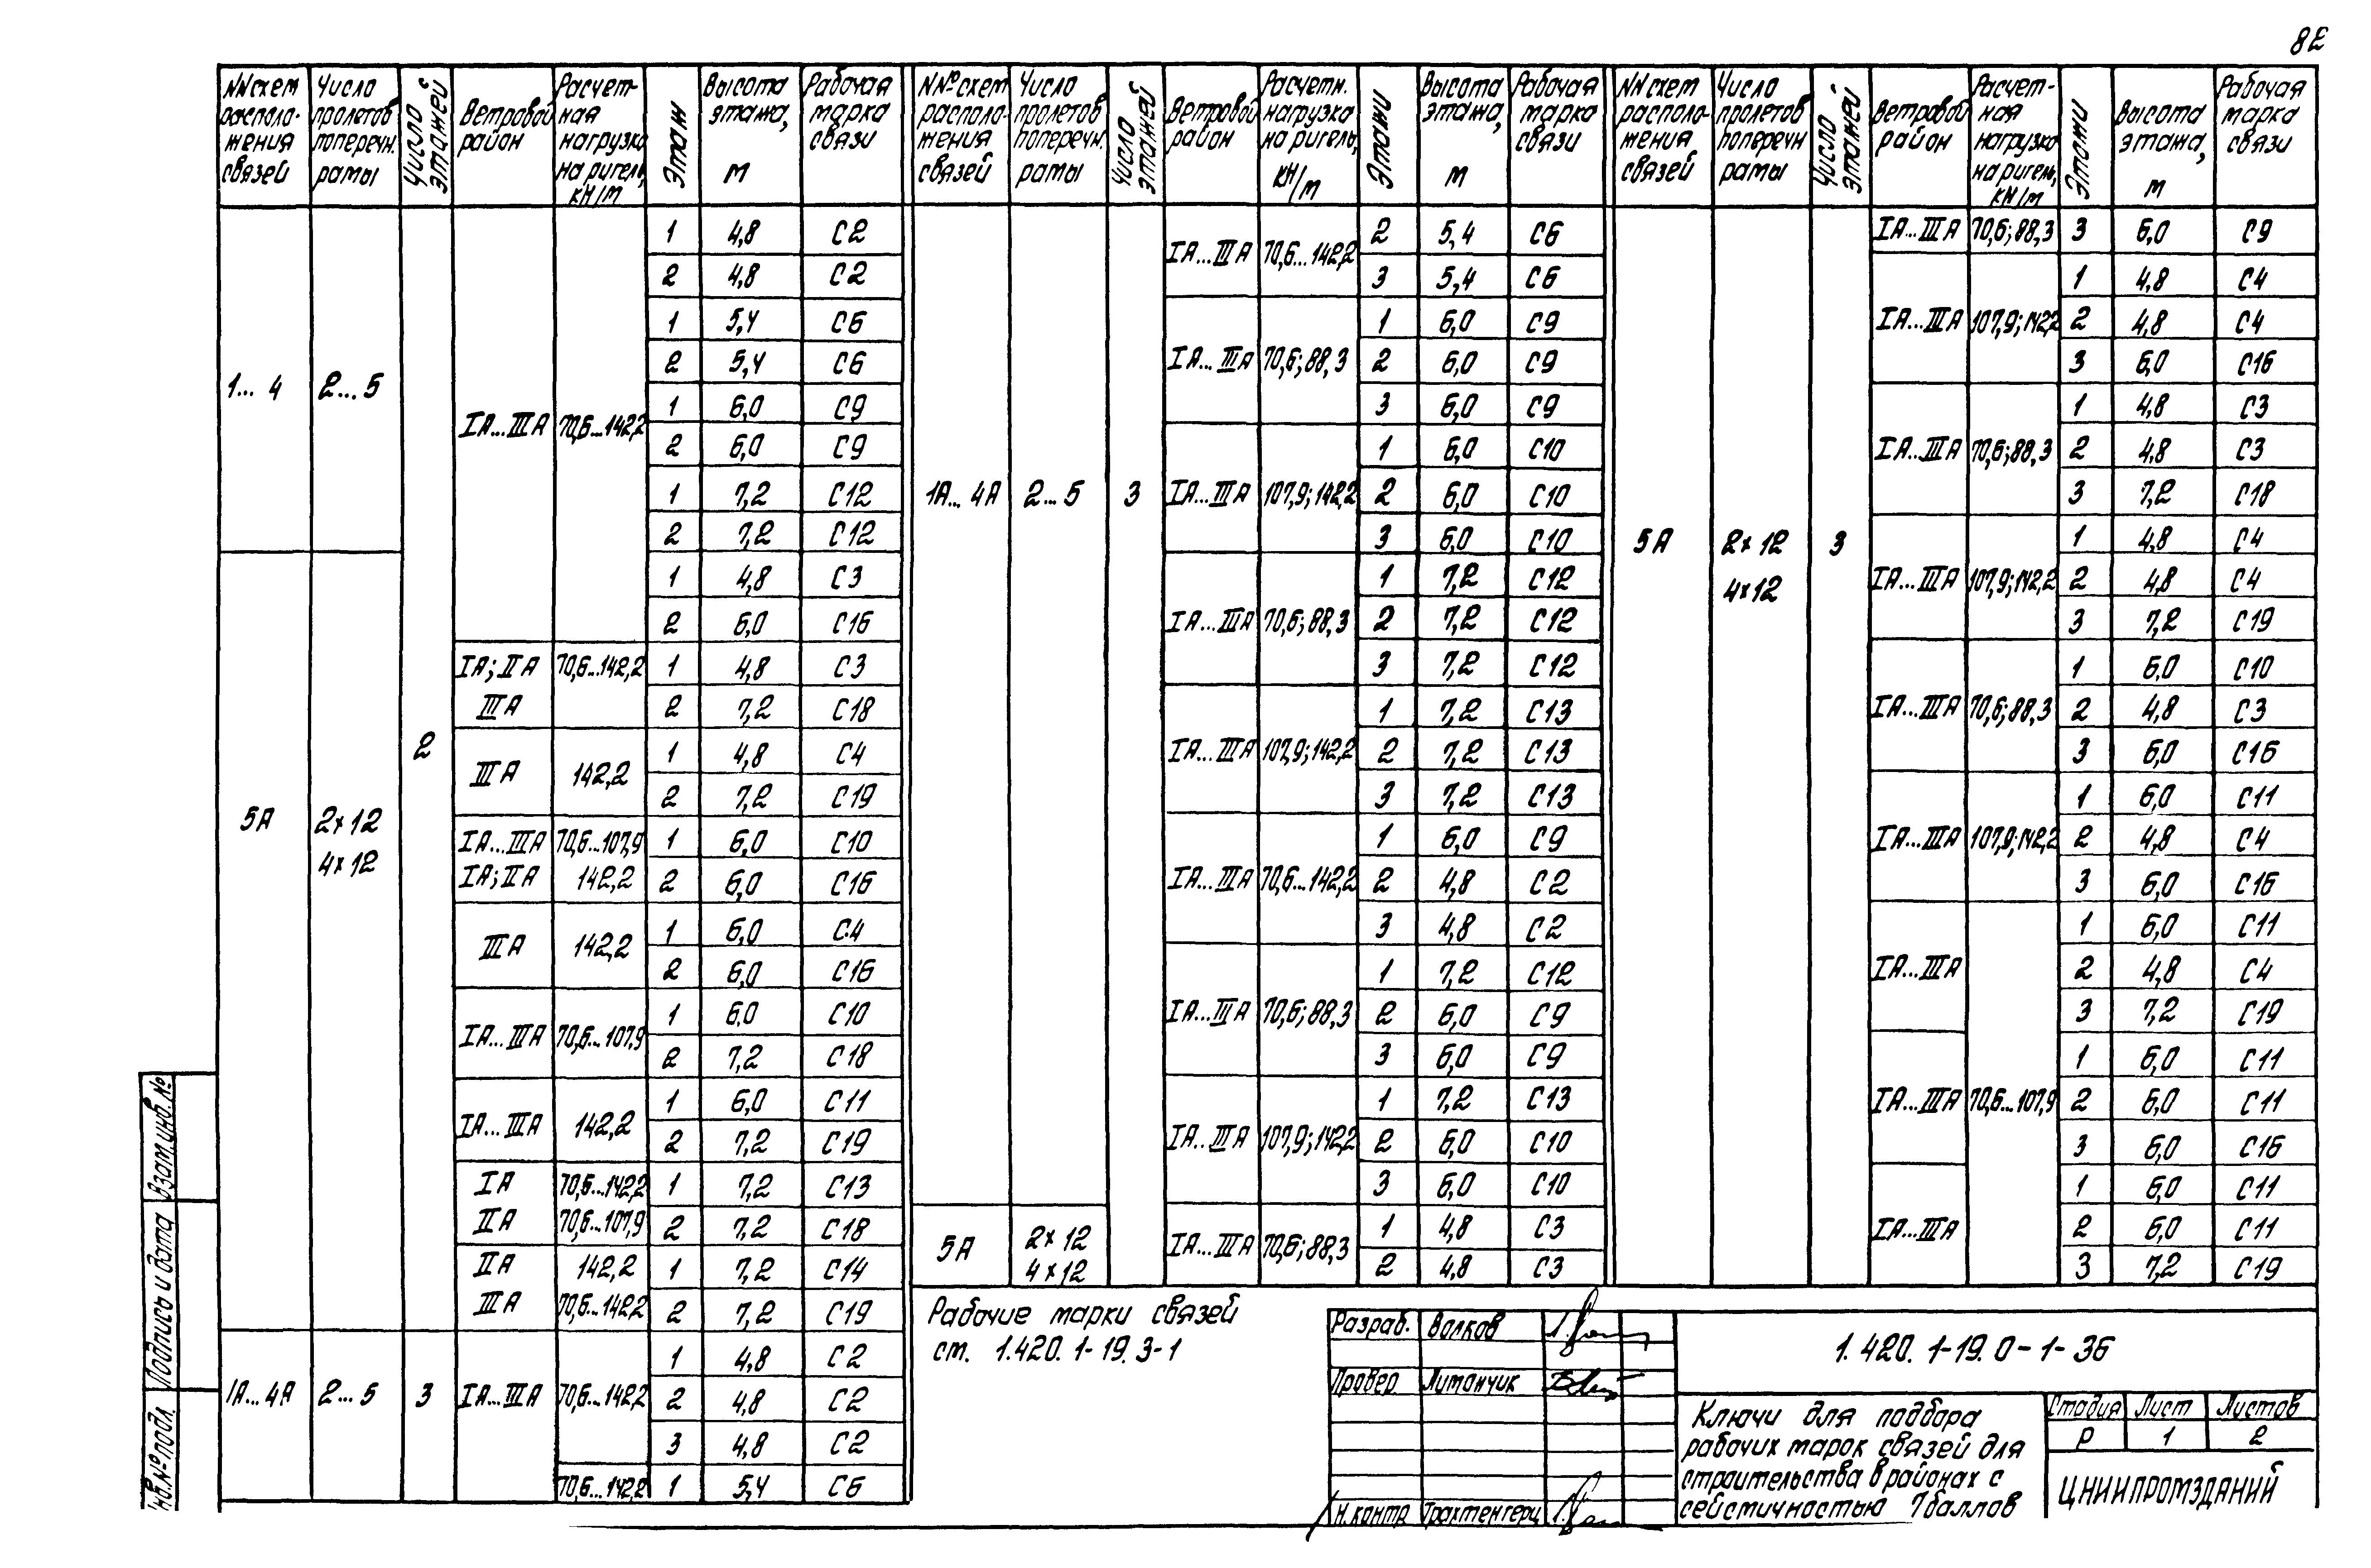 82
NN схем располо-жения связей | Число пролетов поперечн. рамы | Число этажей | Ветровой район | Расчет-ная нагрузка на ригель, кН/м | Этаж | Высота этажа, м | Рабочая марка связи
1... 4 | 2...5 | 2 | IА...IIIА | 70,6...142,2 | 1 | 4,8 | С2
2 | 4,8 | С2
1 | 5,4 | С6
2 | 5,4 | С6
1 | 6,0 | С9
2 | 6,0 | С9
1 | 7,2 | С12
2 | 7,2 | С12
5А | 2×12 4×12 | 1 | 4,8 | С3
2 | 6,0 | С16
IА; IIА | 70,6...142,2 | 1 | 4,8 | С3
IIIА | 2 | 7,2 | С18
IIIА | 142,2 | 1 | 4,8 | С4
2 | 7,2 | С19
IА...IIIА | 70,6...107,9 | 1 | 6,0 | С10
IА; IIА | 142,2 | 2 | 6,0 | С16
IIIА | 142,2 | 1 | 6,0 | С4
2 | 6,0 | С16
IА...IIIА | 70,6...107,9 | 1 | 6,0 | С10
2 | 7,2 | С18
IА...IIIА | 142,2 | 1 | 6,0 | С11
2 | 7,2 | С19
IА | 70,6...142,2 | 1 | 7,2 | С13
IIА | 70,6...107,9 | 2 | 7,2 | С18
IIА | 142,2 | 1 | 7,2 | С14
IIIА | 70,6...142,2 | 2 | 7,2 | С19
1А...4А | 2...5 | 3 | IА...IIIА | 70,6...142,2 | 1 | 4,8 | С2
2 | 4,8 | С2
3 | 4,8 | С2
70,6...142,2 | 1 | 5,4 | С6
NN° схем располо-жения связей | Число пролетов поперечн. рамы | Число этажей | Ветровой район | Расчетн. нагрузка на ригель, кН/м | Этажи | Высота этажа, м | Рабочая марка связи
1А... 4А | 2...5 | 3 | IА...IIIА | 70,6...142,2 | 2 | 5,4 | С6
3 | 5,4 | С6
IА...IIIА | 70,6; 88,3 | 1 | 6,0 | С9
2 | 6,0 | С9
3 | 6,0 | С9
IА...IIIА | 107,9; 142,2 | 1 | 6,0 | С10
2 | 6,0 | С10
3 | 6,0 | С10
IА...IIIА | 70,6; 88,3 | 1 | 7,2 | С12
2 | 7,2 | С12
3 | 7,2 | С12
IА...IIIА | 107,9; 142,2 | 1 | 7,2 | С13
2 | 7,2 | С13
3 | 7,2 | С13
IА...IIIА | 70,6...142,2 | 1 | 6,0 | С9
2 | 4,8 | С2
3 | 4,8 | С2
IА...IIIА | 70,6; 88,3 | 1 | 7,2 | С12
2 | 6,0 | С9
3 | 6,0 | С9
IА...IIIА | 107,9; 142,2 | 1 | 7,2 | С13
2 | 6,0 | С10
3 | 6,0 | С10
5А | 2×12 4×12 | IА...IIIА | 70,6; 88,3 | 1 | 4,8 | С3
2 | 4,8 | С3
NN схем располо-жения связей | Число пролетов поперечн рамы | Число этажей | Ветровой район | Расчет-ная нагрузка на ригель, кН/м | Этажи | Высота этажа, м | Рабочая марка связи
5А | 2×12 4×12 | 3 | IА...IIIА | 70,6; 88,3 | 3 | 6,0 | С9
IА...IIIА | 107,9; 142,2 | 1 | 4,8 | С4
2 | 4,8 | С4
3 | 6,0 | С16
IА...IIIА | 70,6; 88,3 | 1 | 4,8 | С3
2 | 4,8 | С3
3 | 7,2 | С18
IА...IIIА | 107,9; 142,2 | 1 | 4,8 | С4
2 | 4,8 | С4
3 | 7,2 | С19
IА...IIIА | 70,6; 88,3 | 1 | 6,0 | С10
2 | 4,8 | С3
3 | 6,0 | С16
IА...IIIА | 107,9; 142,2 | 1 | 6,0 | С11
2 | 4,8 | С4
3 | 6,0 | С16
IА...IIIА | 1 | 6,0 | С11
2 | 4,8 | С4
3 | 7,2 | С19
IА...IIIА | 70,6...107,9 | 1 | 6,0 | С11
2 | 6,0 | С11
3 | 6,0 | С16
IА...IIIА | 1 | 6,0 | С11
2 | 6,0 | С11
3 | 7,2 | С19
Рабочие марки связей
см. 1.420.1-19.3-1
Разраб. Волков
Провер Литанчик
Н.контр Трахтенгерц
1.420.1-19.0-1-36
Ключи для подбора
рабочих марок связей для
строительства в районах с
сейсмичностью 7 баллов
Стадия Лист Листов
Р 1 2
ЦНИИПРОМЗДАНИЙ
Взам.инв.№
Подпись и дата
Инв.№ подл.